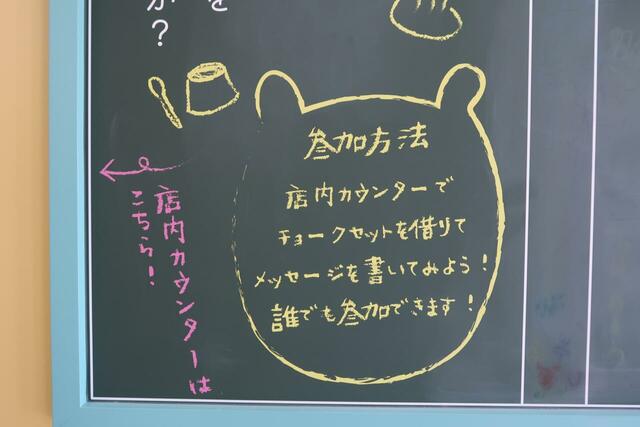 を
か？
参加方法
店内カウンターで
チョークセットを借りて
メッセージを書いてみよう！
誰でも参加できます！
店内カウンターは
こちら！